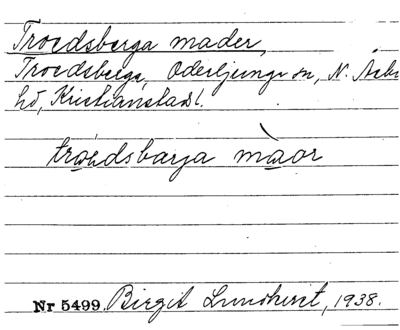 Troedsberga mader,
Troedsberga, Oderljunga sn, N. Åsbo
hd, Kristianstads l.
troedsbarja màor
Nr 5499. Birgit Lundkvist, 1938.